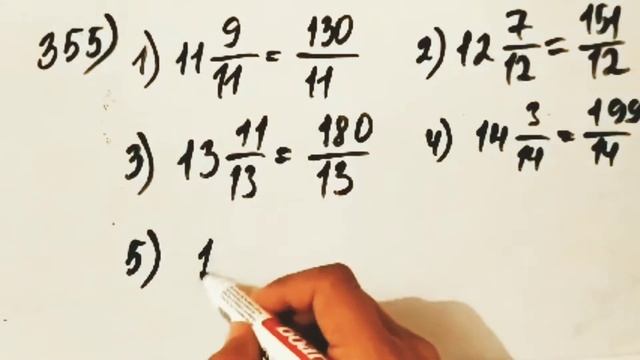 355) 1) 11 9/11 = 130/11 2) 12 7/12 = 151/12
3) 13 11/13 = 180/13 4) 14 3/14 = 199/14
5) 1